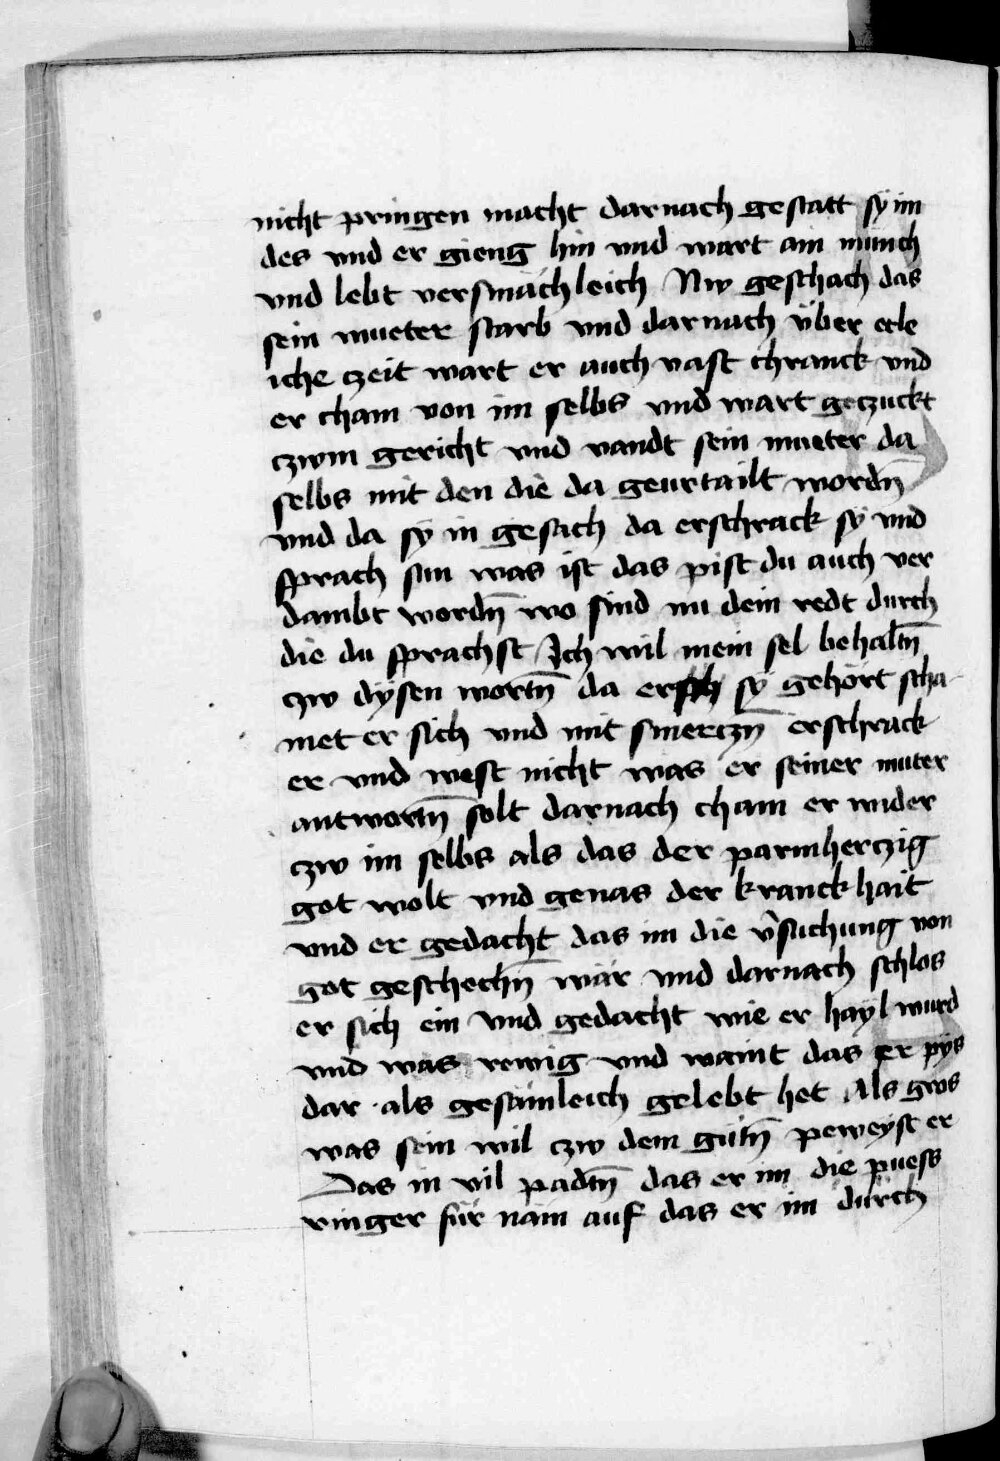 nicht pringen macht darnach gestatt sy im
des vnd er gieng hin vnd wart ain münch
vnd lebt versmächleich Nw geschach das
sein mueter starb vnd darnach über etle
iche czeit wart er auch vast chranck vnd
er cham von im selbs vnd wart geczuckt
czwm gericht vnd vandt sein mueter da
selbs mit den die da geurtailt wordn̄
vnd da sy in gesach da erschrack sy vnd
sprach sun was ist das pist du auch ver
dambt wordn̄ wo sind nu dein redt durch
die du sprachst Ich wil mein sel behaltn̄
czw dysen wortn̄ da er sy gehört scha
met er sich vnd mit smerczn̄ erschrack
er vnd west nicht was er seiner muter
antwortn̄ solt darnach cham er wider
czw im selbs als das der parmherczig
got wolt vnd genas der kranckhait
vnd er gedacht das im die v̾suchung von
got geschechn̄ wär vnd darnach schlos
er sich ein vnd gedacht wie er hayl wurd
vnd was rewig vnd waint das er pys
dar als gesämleich gelebt het Als gros
was sein wil czw dem gutn̄ peweyst er
Das in vil padtn̄ das er im die puess
ringer für näm auf das er im durch